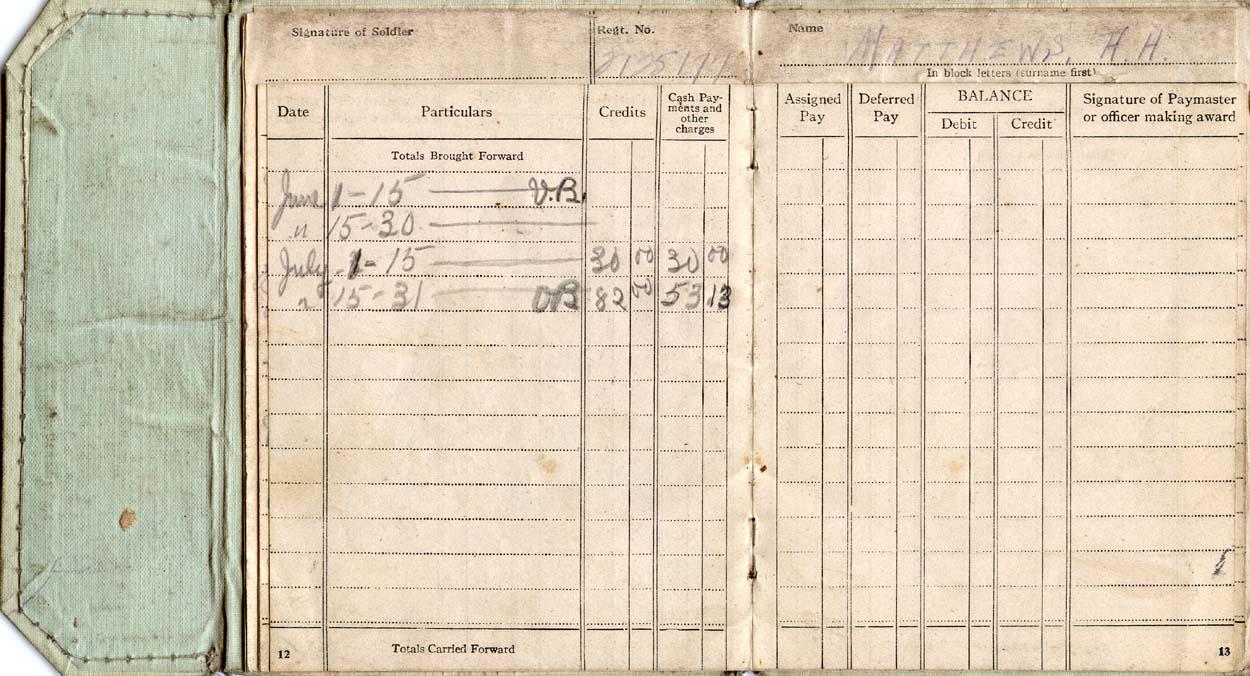 Signature of Soldier
Regt. No.
3135177
Date Particulars Credits Cash Pay-
ments and
other
charges
Totals Brought Forward
June 1-15 — V.B.
" 15-30 —
July 1-15 — 30 00 30 00
" 15-31 — VB 82 00 53 13
12 Totals Carried Forward
Name MATTHEWS, H.H.
In block letters (surname first)
Assigned
Pay
Deferred
Pay
BALANCE
Debit Credit
Signature of Paymaster
or officer making award
13